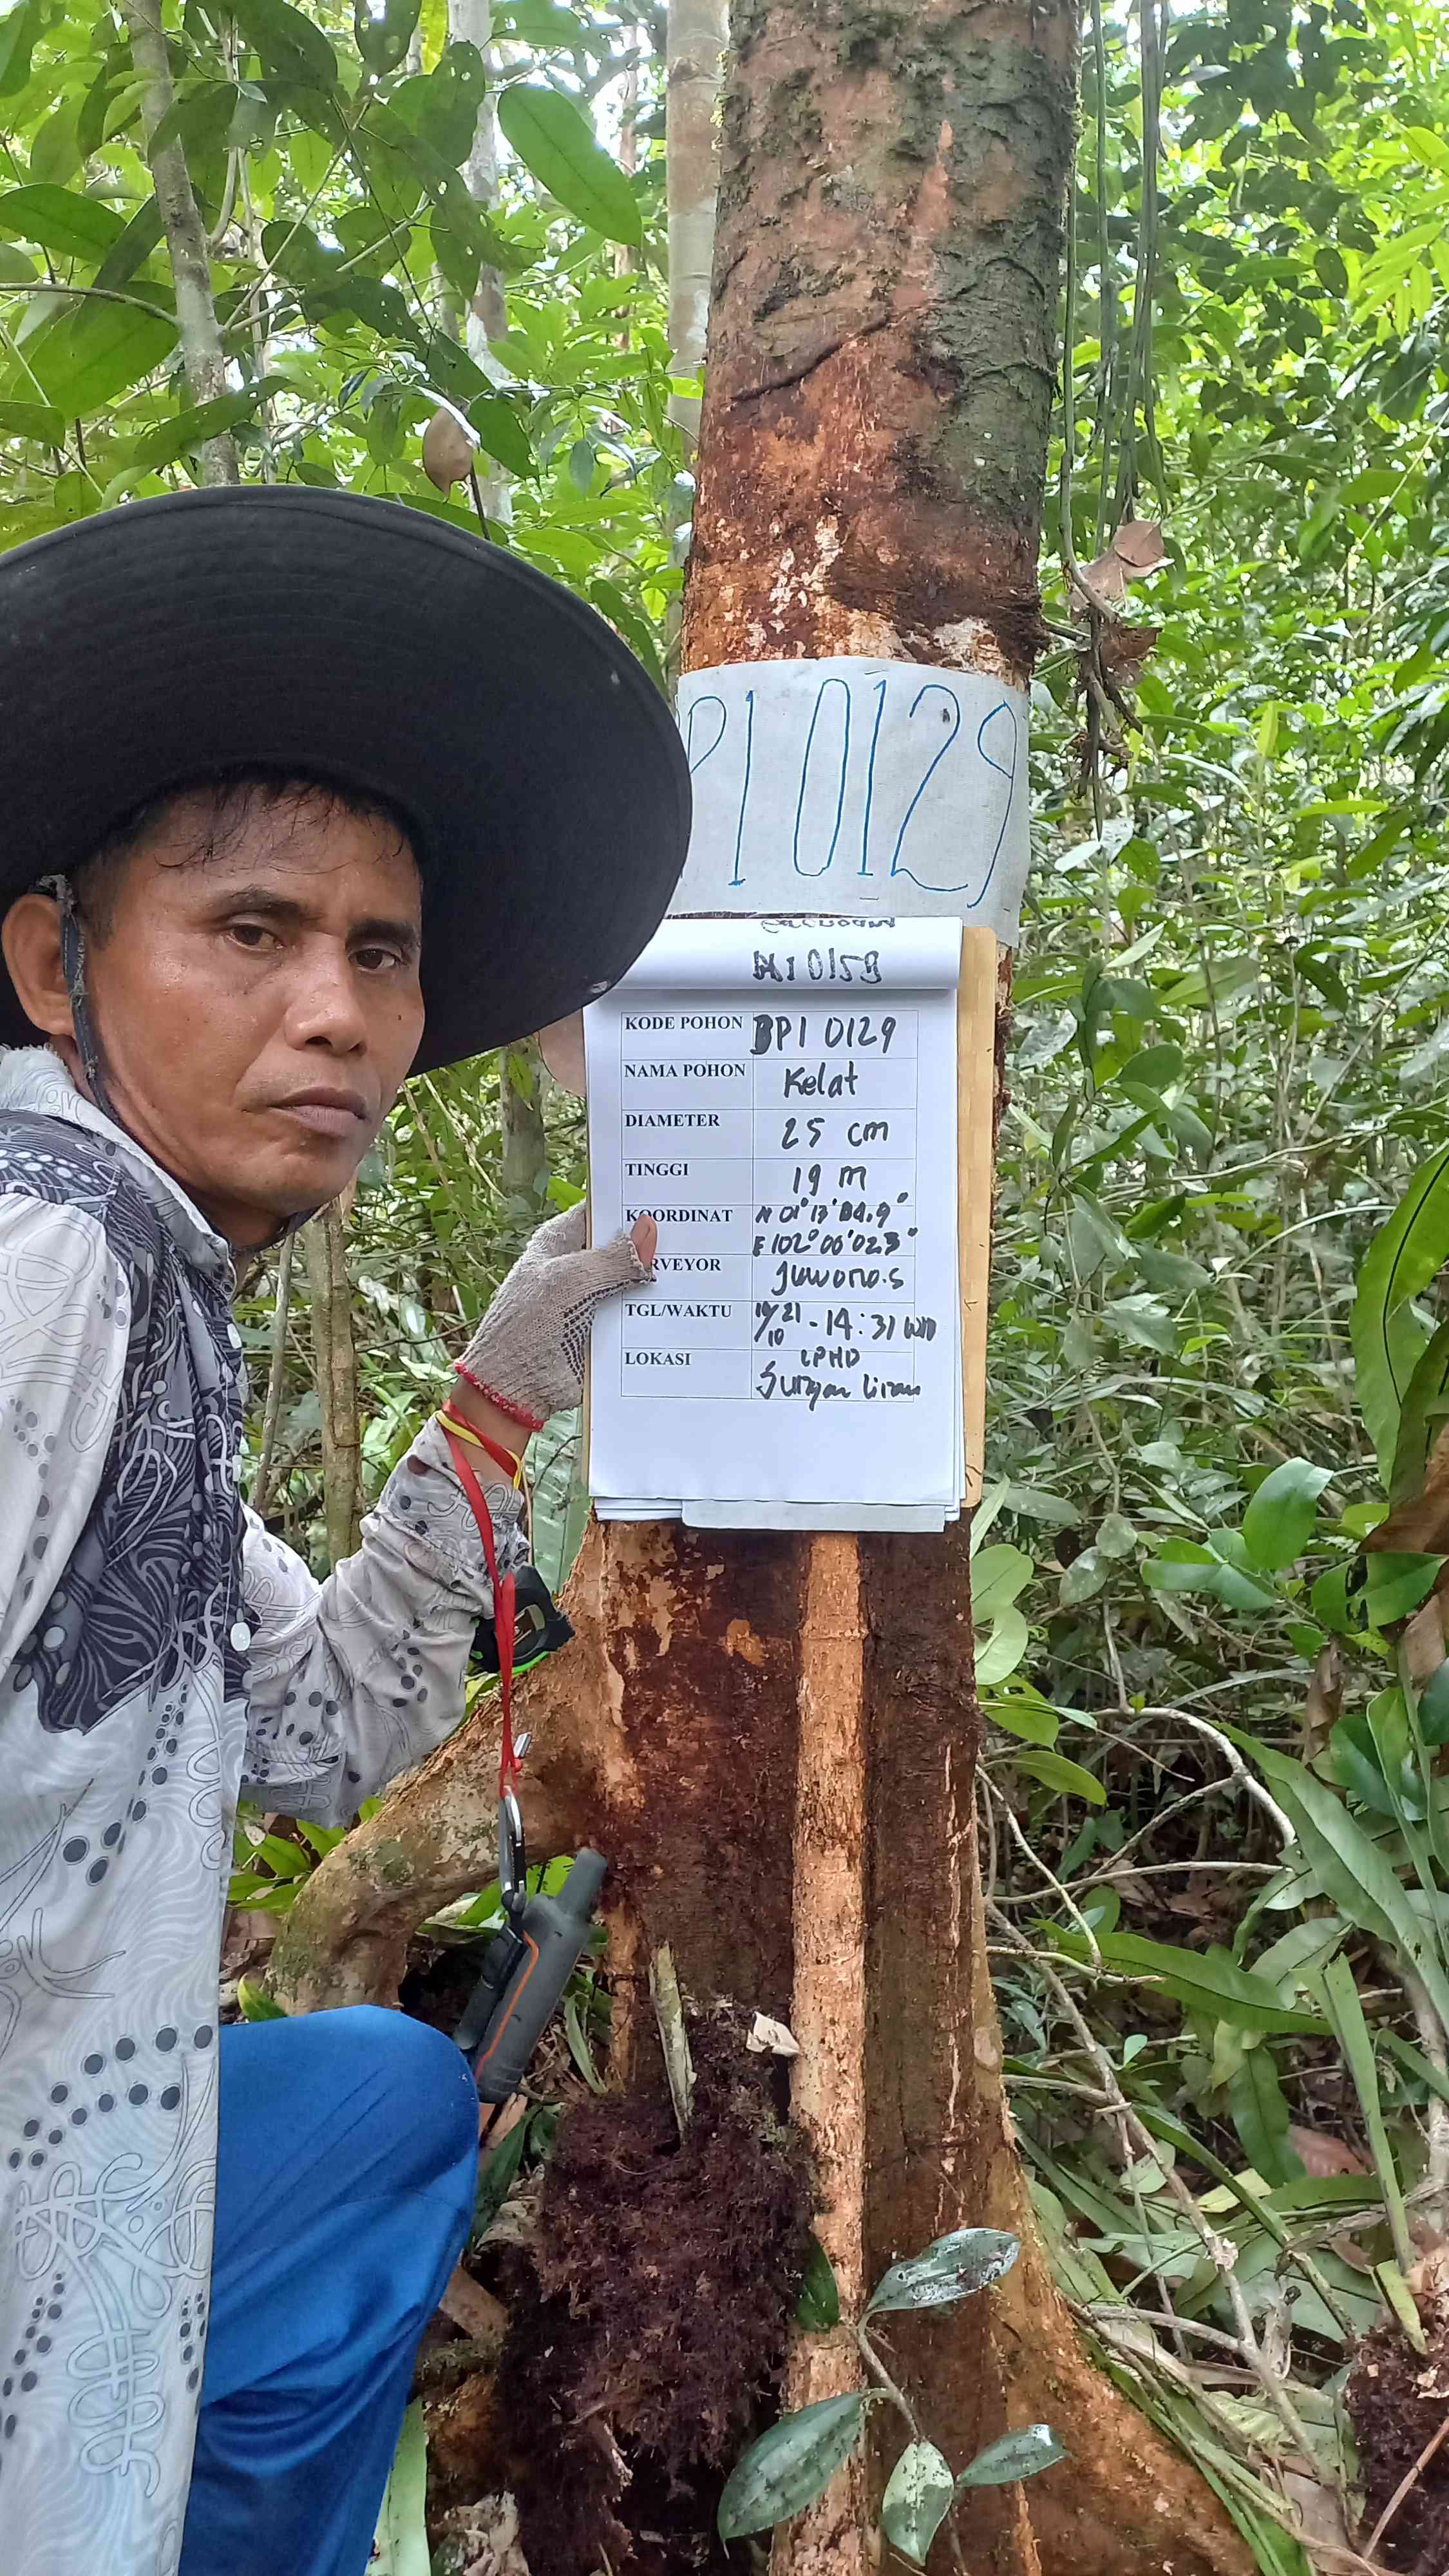 PI 0129
0159
KODE POHON BPI 0129
NAMA POHON Kelat
DIAMETER 25 cm
TINGGI 19 m
KOORDINAT N 01° 13'
E 102° 00' 02.3"
RVEYOR Juwono.S
TGL/WAKTU /10 21 - 14:31 WIB
LOKASI LPHD